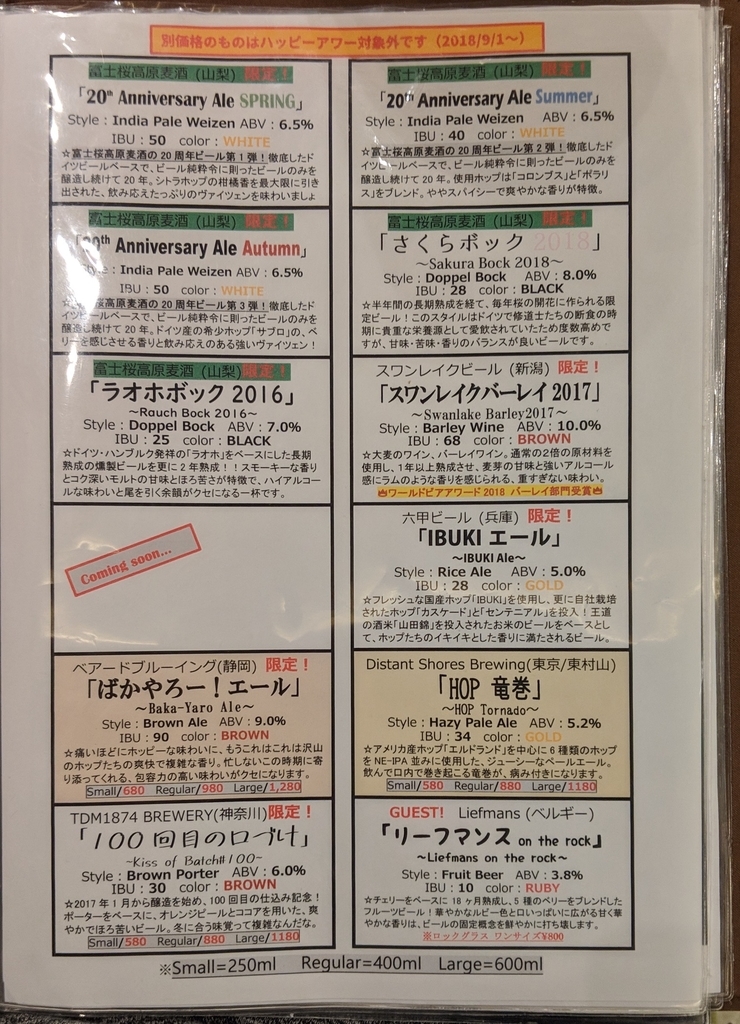 別価格のものはハッピーアワー対象外です（2018/9/1～）
富士桜高原麦酒（山梨）限定！
「20th Anniversary Ale SPRING」
Style：India Pale Weizen ABV：6.5%
IBU：50 color：WHITE
☆富士桜高原麦酒の20周年ビール第1弾！徹底したド
イツビールベースで、ビール純粋令に則ったビールのみを
醸造し続けて20年。シトラホップの柑橘香を最大限に引き
出された、飲み応えたっぷりのヴァイツェンを味わいましょ
富士桜高原麦酒（山梨）限定！
「20th Anniversary Ale Summer」
Style：India Pale Weizen ABV：6.5%
IBU：40 color：WHITE
☆富士桜高原麦酒の20周年ビール第2弾！徹底したド
イツビールベースで、ビール純粋令に則ったビールのみを
醸造し続けて20年。使用ホップは「コロンブス」と「ポラリ
ス」をブレンド。ややスパイシーで爽やかな香りが特徴。
富士桜高原麦酒（山梨）限定！
「20th Anniversary Ale Autumn」
Style：India Pale Weizen ABV：6.5%
IBU：50 color：WHITE
☆富士桜高原麦酒の20周年ビール第3弾！徹底したド
イツビールベースで、ビール純粋令に則ったビールのみを
醸造し続けて20年。ドイツ産の希少ホップ「サブロ」の、ベ
リーを感じさせる香りと飲み応えのある強いヴァイツェン！
富士桜高原麦酒（山梨）限定！
「さくらボック 2018」
～Sakura Bock 2018～
Style：Doppel Bock ABV：8.0%
IBU：28 color：BLACK
☆半年間の長期熟成を経て、毎年桜の開花に作られる限
定ビール！このスタイルはドイツで修道士たちの断食の時
期に貴重な栄養源として愛飲されていたため度数高めで
すが、甘味・苦味・香りのバランスが良いビールです。
富士桜高原麦酒（山梨）限定！
「ラオホボック 2016」
～Rauch Bock 2016～
Style：Doppel Bock ABV：7.0%
IBU：25 color：BLACK
☆ドイツ・ハンブルク発祥の「ラオホ」をベースにした長期
熟成の燻製ビールを更に2年熟成！！スモーキーな香り
とコク深いモルトの甘味とほろ苦さが特徴で、ハイアルコー
ルな味わいと尾を引く余韻がクセになる一杯です。
スワンレイクビール（新潟）限定！
「スワンレイクバーレイ 2017」
～Swanlake Barley2017～
Style：Barley Wine ABV：10.0%
IBU：68 color：BROWN
☆大麦のワイン、バーレイワイン。通常の2倍の原材料を
使用し、1年以上熟成させ、麦芽の甘味と強いアルコール
感にラムのような香りを感じられる、重すぎない味わい。
ワールドビアアワード2018 バーレイ部門受賞
Coming soon...
六甲ビール（兵庫）限定！
「IBUKI エール」
～IBUKI Ale～
Style：Rice Ale ABV：5.0%
IBU：28 color：GOLD
☆フレッシュな国産ホップ「IBUKI」を使用し、更に自社栽培
されたホップ「カスケード」と「センテニアル」を投入！王道
の酒米「山田錦」を投入されたお米のビールをベースとし
て、ホップたちのイキイキとした香りに満たされるビール。
ベアードブルーイング(静岡) 限定！
「ばかやろー！エール」
～Baka-Yaro Ale～
Style：Brown Ale ABV：9.0%
IBU：90 color：BROWN
☆痛いほどにホッピーな味わいに、もうこれはこれは沢山
のホップたちの爽快で複雑な香り。忙しないこの時期に寄
り添ってくれる、包容力の高い味わいがクセになります。
Small/680 Regular/980 Large/1,280
Distant Shores Brewing(東京/東村山)
「HOP 竜巻」
～HOP Tornado～
Style：Hazy Pale Ale ABV：5.2%
IBU：34 color：GOLD
☆アメリカ産ホップ「エルドランド」を中心に6種類のホップ
をNE-IPA並みに使用した、ジューシーなペールエール。
飲んで口内で巻き起こる竜巻が、病み付きになります。
Small/580 Regular/880 Large/1180
TDM1874 BREWERY(神奈川)限定！
「100回目の口づけ」
～Kiss of Batch#100～
Style：Brown Porter ABV：6.0%
IBU：30 color：BROWN
☆2017年1月から醸造を始め、100回目の仕込み記念！
ポーターをベースに、オレンジピールとココアを用いた、爽
やかでほろ苦いビール。冬に合う味覚って複雑なんだな。
Small/580 Regular/880 Large/1180
GUEST! Liefmans (ベルギー)
「リーフマンス on the rock」
～Liefmans on the rock～
Style：Fruit Beer ABV：3.8%
IBU：10 color：RUBY
☆チェリーをベースに18ヶ月熟成し、5種のベリーをブレンドした
フルーツビール！華やかなルビー色と口いっぱいに広がる甘く華
やかな香りは、ビールの固定概念を鮮やかに打ち壊します。
※ロックグラス ワンサイズ¥800
※Small=250ml Regular=400ml Large=600ml